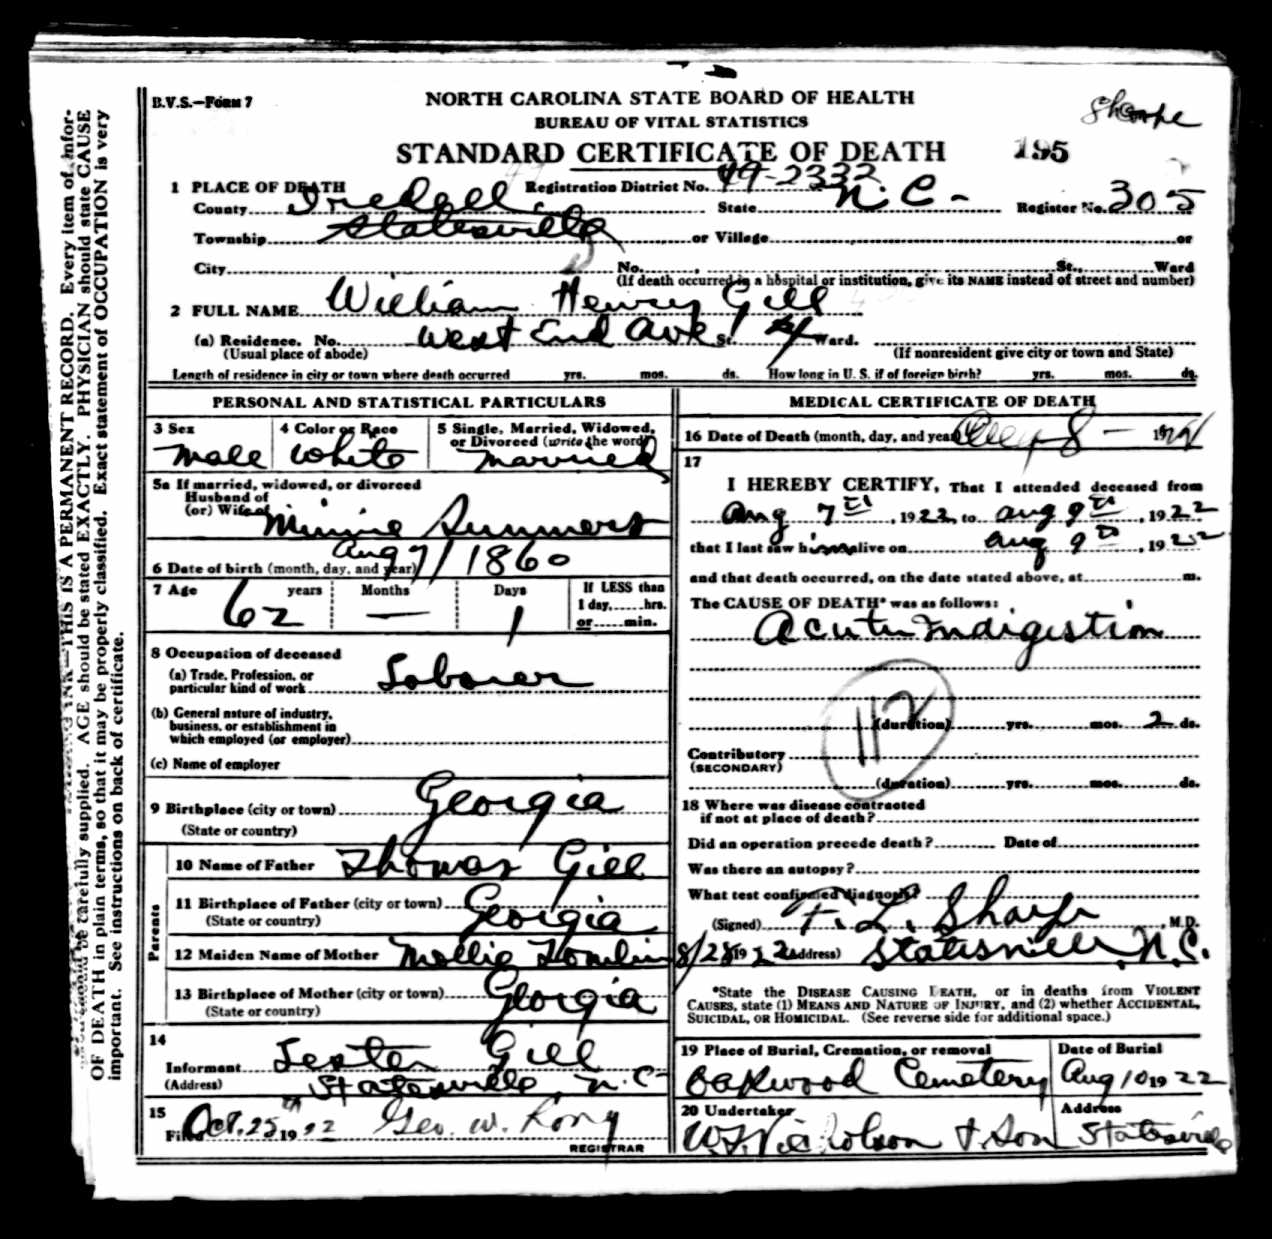 Sharpe
B.V.S.—FORM 7
NORTH CAROLINA STATE BOARD OF HEALTH
BUREAU OF VITAL STATISTICS
STANDARD CERTIFICATE OF DEATH 195
1 PLACE OF DEATH Registration District No. 49-2332
County Iredell State N.C. Register No. 305
Township Statesville or Village or
City No. St., Ward
(If death occurred in a hospital or institution, give its NAME instead of street and number)
2 FULL NAME William Henry Gill
(a) Residence. No. West End Ave St. 4 Ward.
(Usual place of abode) (If nonresident give city or town and State)
Length of residence in city or town where death occurred yrs. mos. ds. How long in U. S. if of foreign birth? yrs. mos. ds.
PERSONAL AND STATISTICAL PARTICULARS
3 Sex 4 Color or Race 5 Single, Married, Widowed,
or Divorced (write the word)
Male White Married
5a If married, widowed, or divorced
Husband of
(or) Wife of Minnie Summers
6 Date of birth (month, day, and year) Aug 7/1860
7 Age 62 years Months — Days 1 If LESS than
1 day, hrs.
or min.
8 Occupation of deceased
(a) Trade, Profession, or
particular kind of work Laborer
(b) General nature of industry,
business, or establishment in
which employed (or employer)
(c) Name of employer
9 Birthplace (city or town) Georgia
(State or country)
Parents
10 Name of Father Thomas Gill
11 Birthplace of Father (city or town) Georgia
(State or country)
12 Maiden Name of Mother Mollie Tomlin
13 Birthplace of Mother (city or town) Georgia
(State or country)
14
Informant Lester Gill
(Address) Statesville, N.C.
15
Filed Oct. 25th 1922 Geo. W. Long
REGISTRAR
MEDICAL CERTIFICATE OF DEATH
16 Date of Death (month, day, and year) Aug 8 — 19
17
I HEREBY CERTIFY, That I attended deceased from
Aug 7th, 1922, to Aug 9th, 1922
that I last saw him alive on Aug 9th, 1922
and that death occurred, on the date stated above, at m.
The CAUSE OF DEATH* was as follows:
Acute Indigestion
112
(duration) yrs. mos. 2 ds.
Contributory
(SECONDARY)
(duration) yrs. mos. ds.
18 Where was disease contracted
if not at place of death?
Did an operation precede death? Date of
Was there an autopsy?
What test confirmed diagnosis?
(Signed) F. L. Sharpe M.D.
8/28 1922 (Address) Statesville, N.C.
*State the DISEASE CAUSING DEATH, or in deaths from VIOLENT
CAUSES, state (1) MEANS AND NATURE OF INJURY, and (2) whether ACCIDENTAL,
SUICIDAL, OR HOMICIDAL. (See reverse side for additional space.)
19 Place of Burial, Cremation, or removal Date of Burial
Oakwood Cemetery Aug 10 1922
20 Undertaker Address
W.F. Nicholson & Son Statesville
THIS IS A PERMANENT RECORD. Every item of infor-
should be carefully supplied. AGE should be stated EXACTLY. PHYSICIAN should state CAUSE
OF DEATH in plain terms, so that it may be properly classified. Exact statement of OCCUPATION is very
important. See instructions on back of certificate.